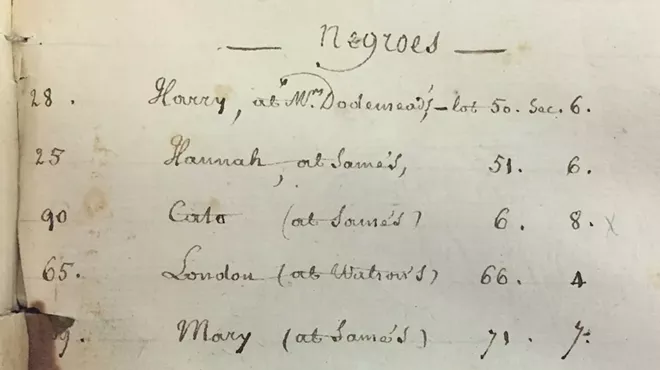 — Negroes —
28. Harry, at Mrs. Dodemead's, - lot 50. Sec. 6.
25 Hannah, at same's, 51. 6.
90 Cato (at same's) 6. 8. x
65. London (at Watson's) 66. 4
9. Mary (at same's) 71. 7.